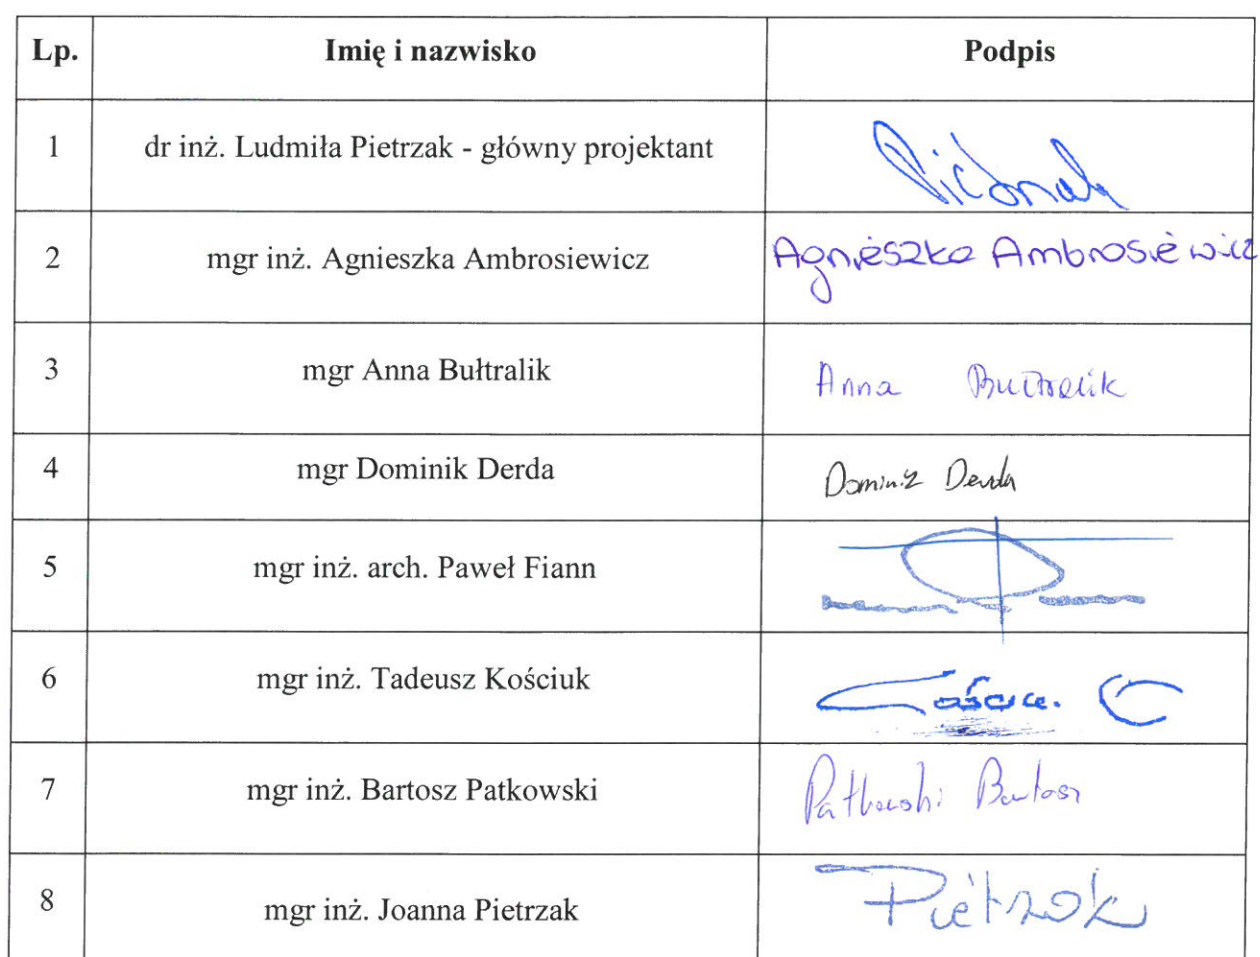 Lp. Imię i nazwisko Podpis
1 dr inż. Ludmiła Pietrzak - główny projektant
2 mgr inż. Agnieszka Ambrosiewicz Agnieszka Ambrosiewicz
3 mgr Anna Bułtralik Anna Bułtralik
4 mgr Dominik Derda Dominik Derda
5 mgr inż. arch. Paweł Fiann
6 mgr inż. Tadeusz Kościuk
7 mgr inż. Bartosz Patkowski Patkowski Bartosz
8 mgr inż. Joanna Pietrzak Pietrzak